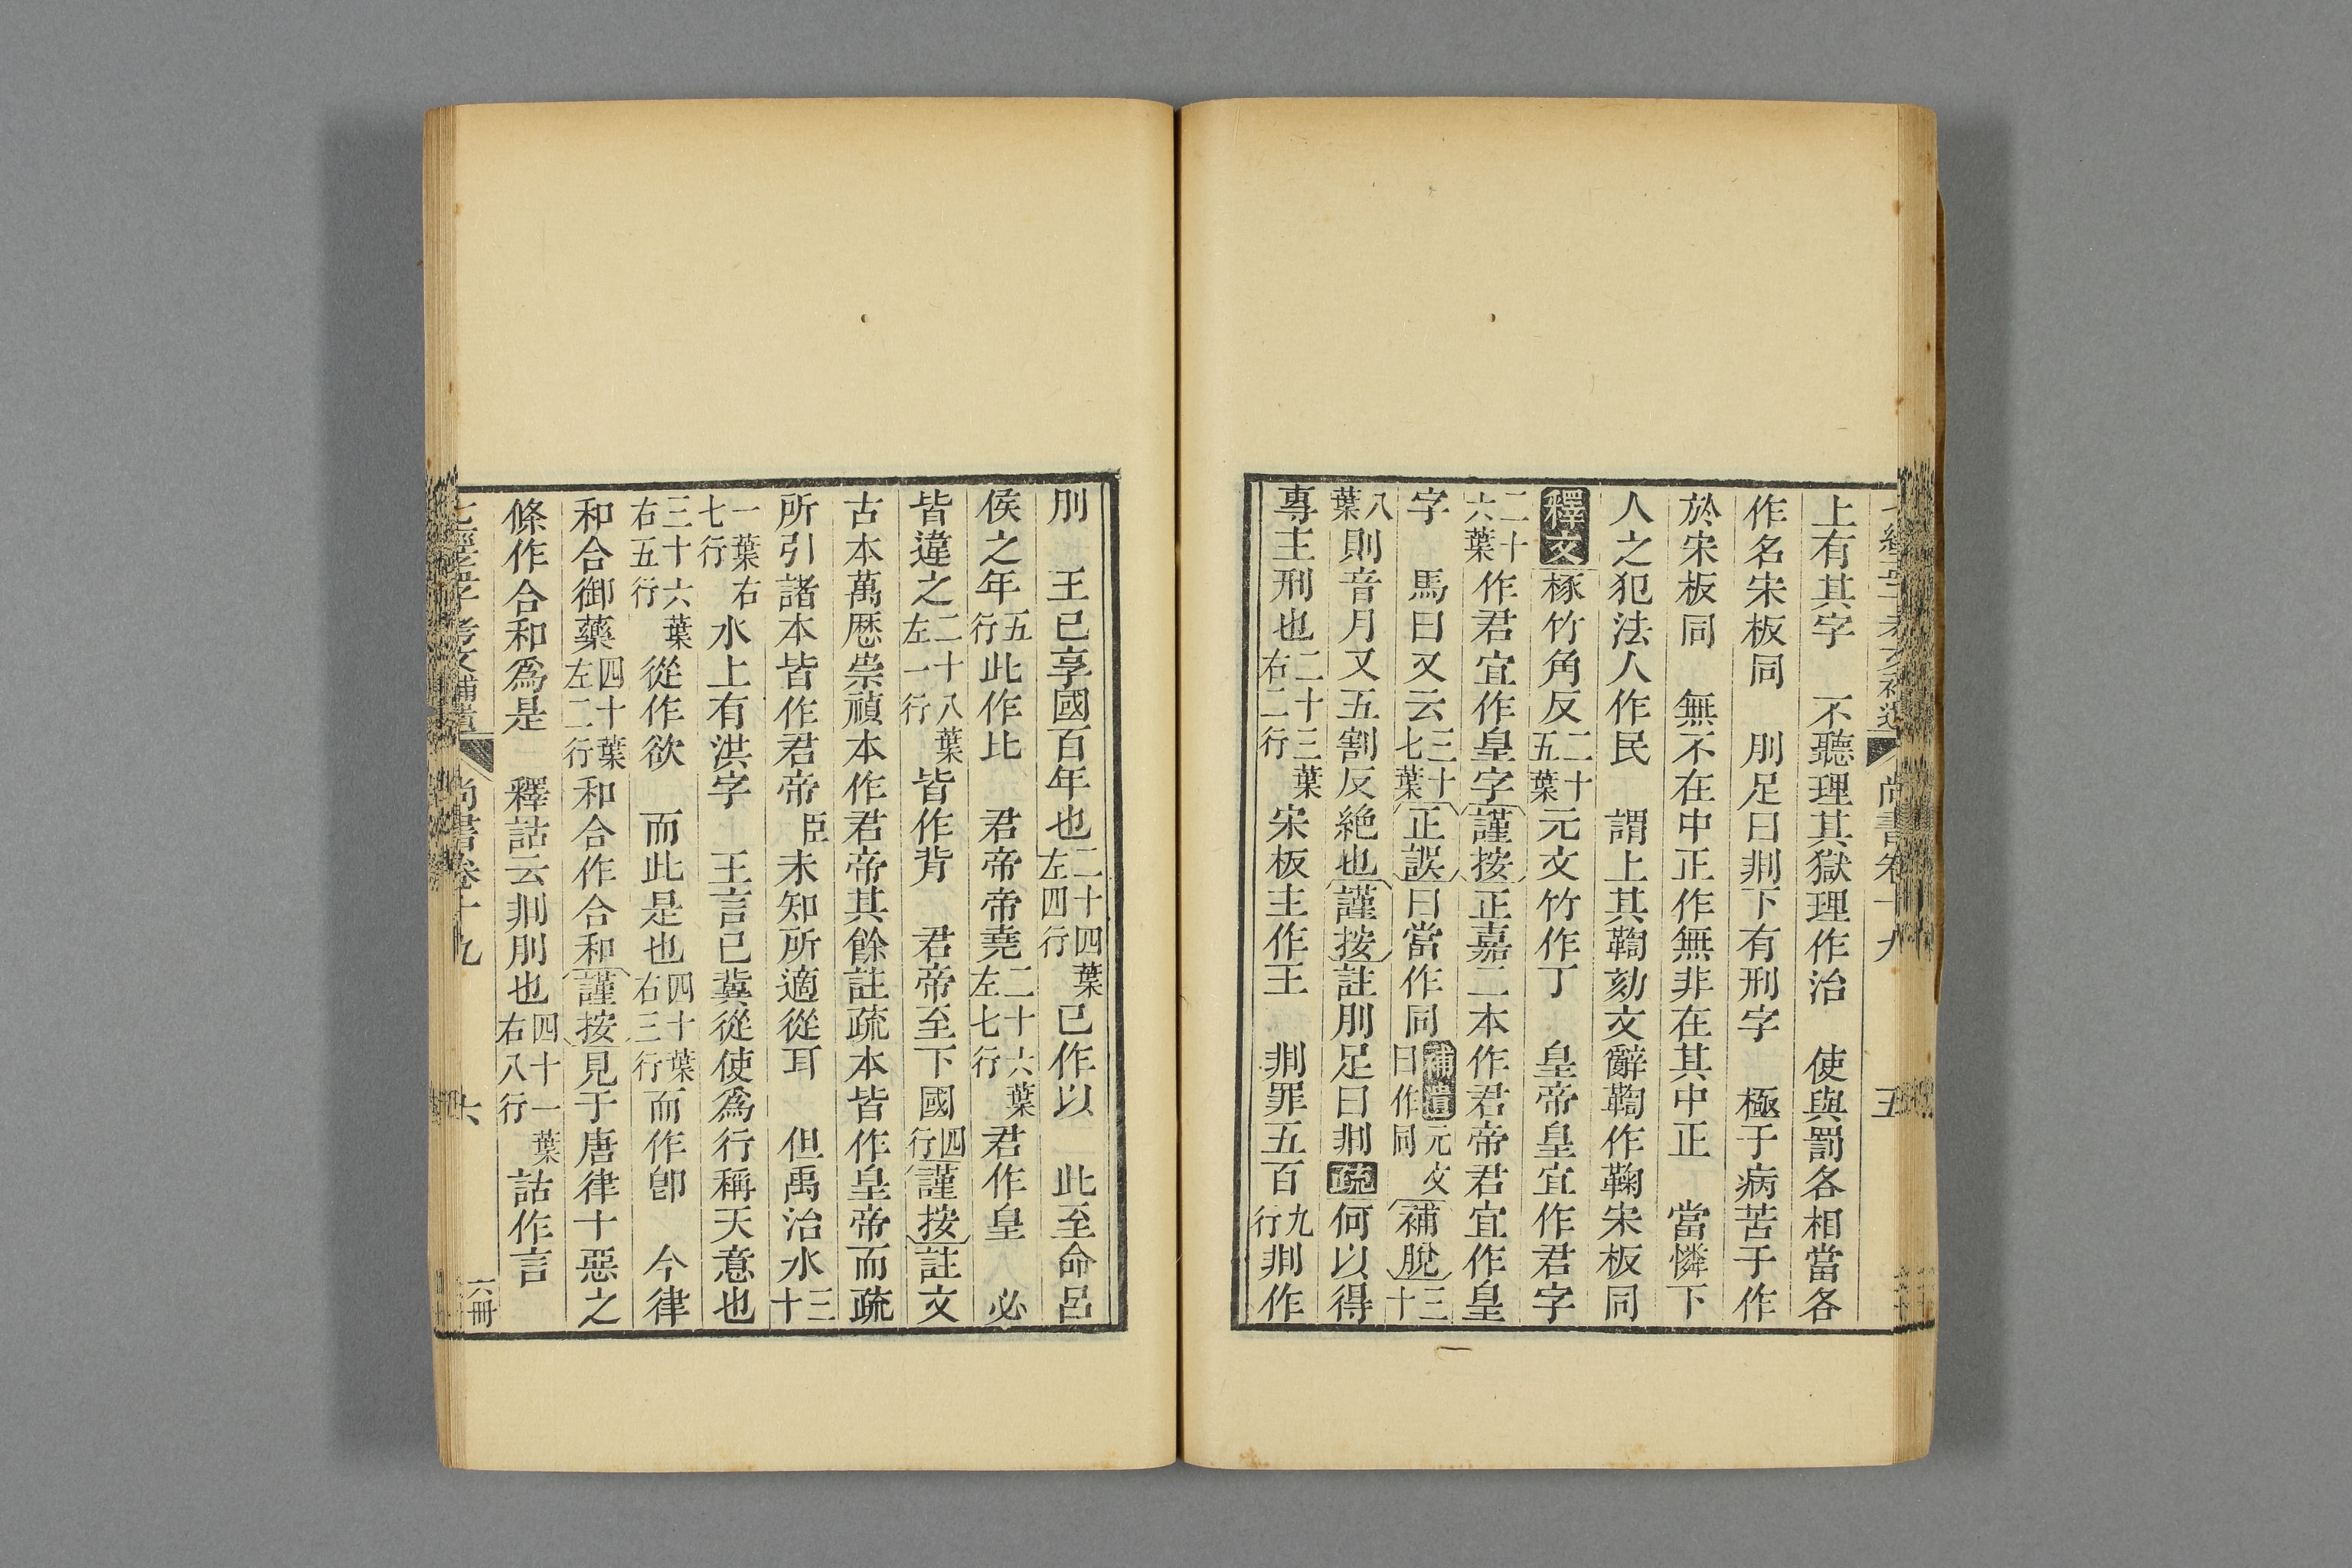 七經孟子考文補遺 尚書卷十九 五
上有其字 不聽理其獄理作治 使與罰各相當各
作名宋板同 刖足曰剕下有刑字 極于病苦于作
於宋板同 無不在中正作無非在其中正 當憐下
人之犯法人作民 謂上其鞫劾文辭鞫作鞠宋板同
釋文 椓竹角反二十五葉元文竹作丁 皇帝皇宜作君字
二十六葉作君宜作皇字謹按正嘉二本作君帝君宜作皇
字 馬曰又云三十七葉正誤曰當作同補遺元文曰作同補脫三十
八葉則音月又五割反絕也謹按註刖足曰剕疏何以得
專主刑也二十三葉右二行宋板主作王 剕罪五百九行剕作
刖 王已享國百年也二十四葉左四行已作以 此至命呂
侯之年五行此作比 君帝帝堯二十六葉左七行君作皇 必
皆違之二十八葉左一行皆作背 君帝至下國四行謹按註文
古本萬曆崇禎本作君帝其餘註疏本皆作皇帝而疏
所引諸本皆作君帝臣未知所適從耳 但禹治水三十
一葉右七行水上有洪字 王言已冀從使爲行稱天意也
三十六葉右五行從作欲 而此是也四十葉右三行而作卽 今律
和合御藥四十葉左二行和合作合和謹按見于唐律十惡之
條作合和爲是 釋詁云剕刖也四十一葉右八行詁作言
七經孟子考文補遺 尚書卷十九 六 六冊